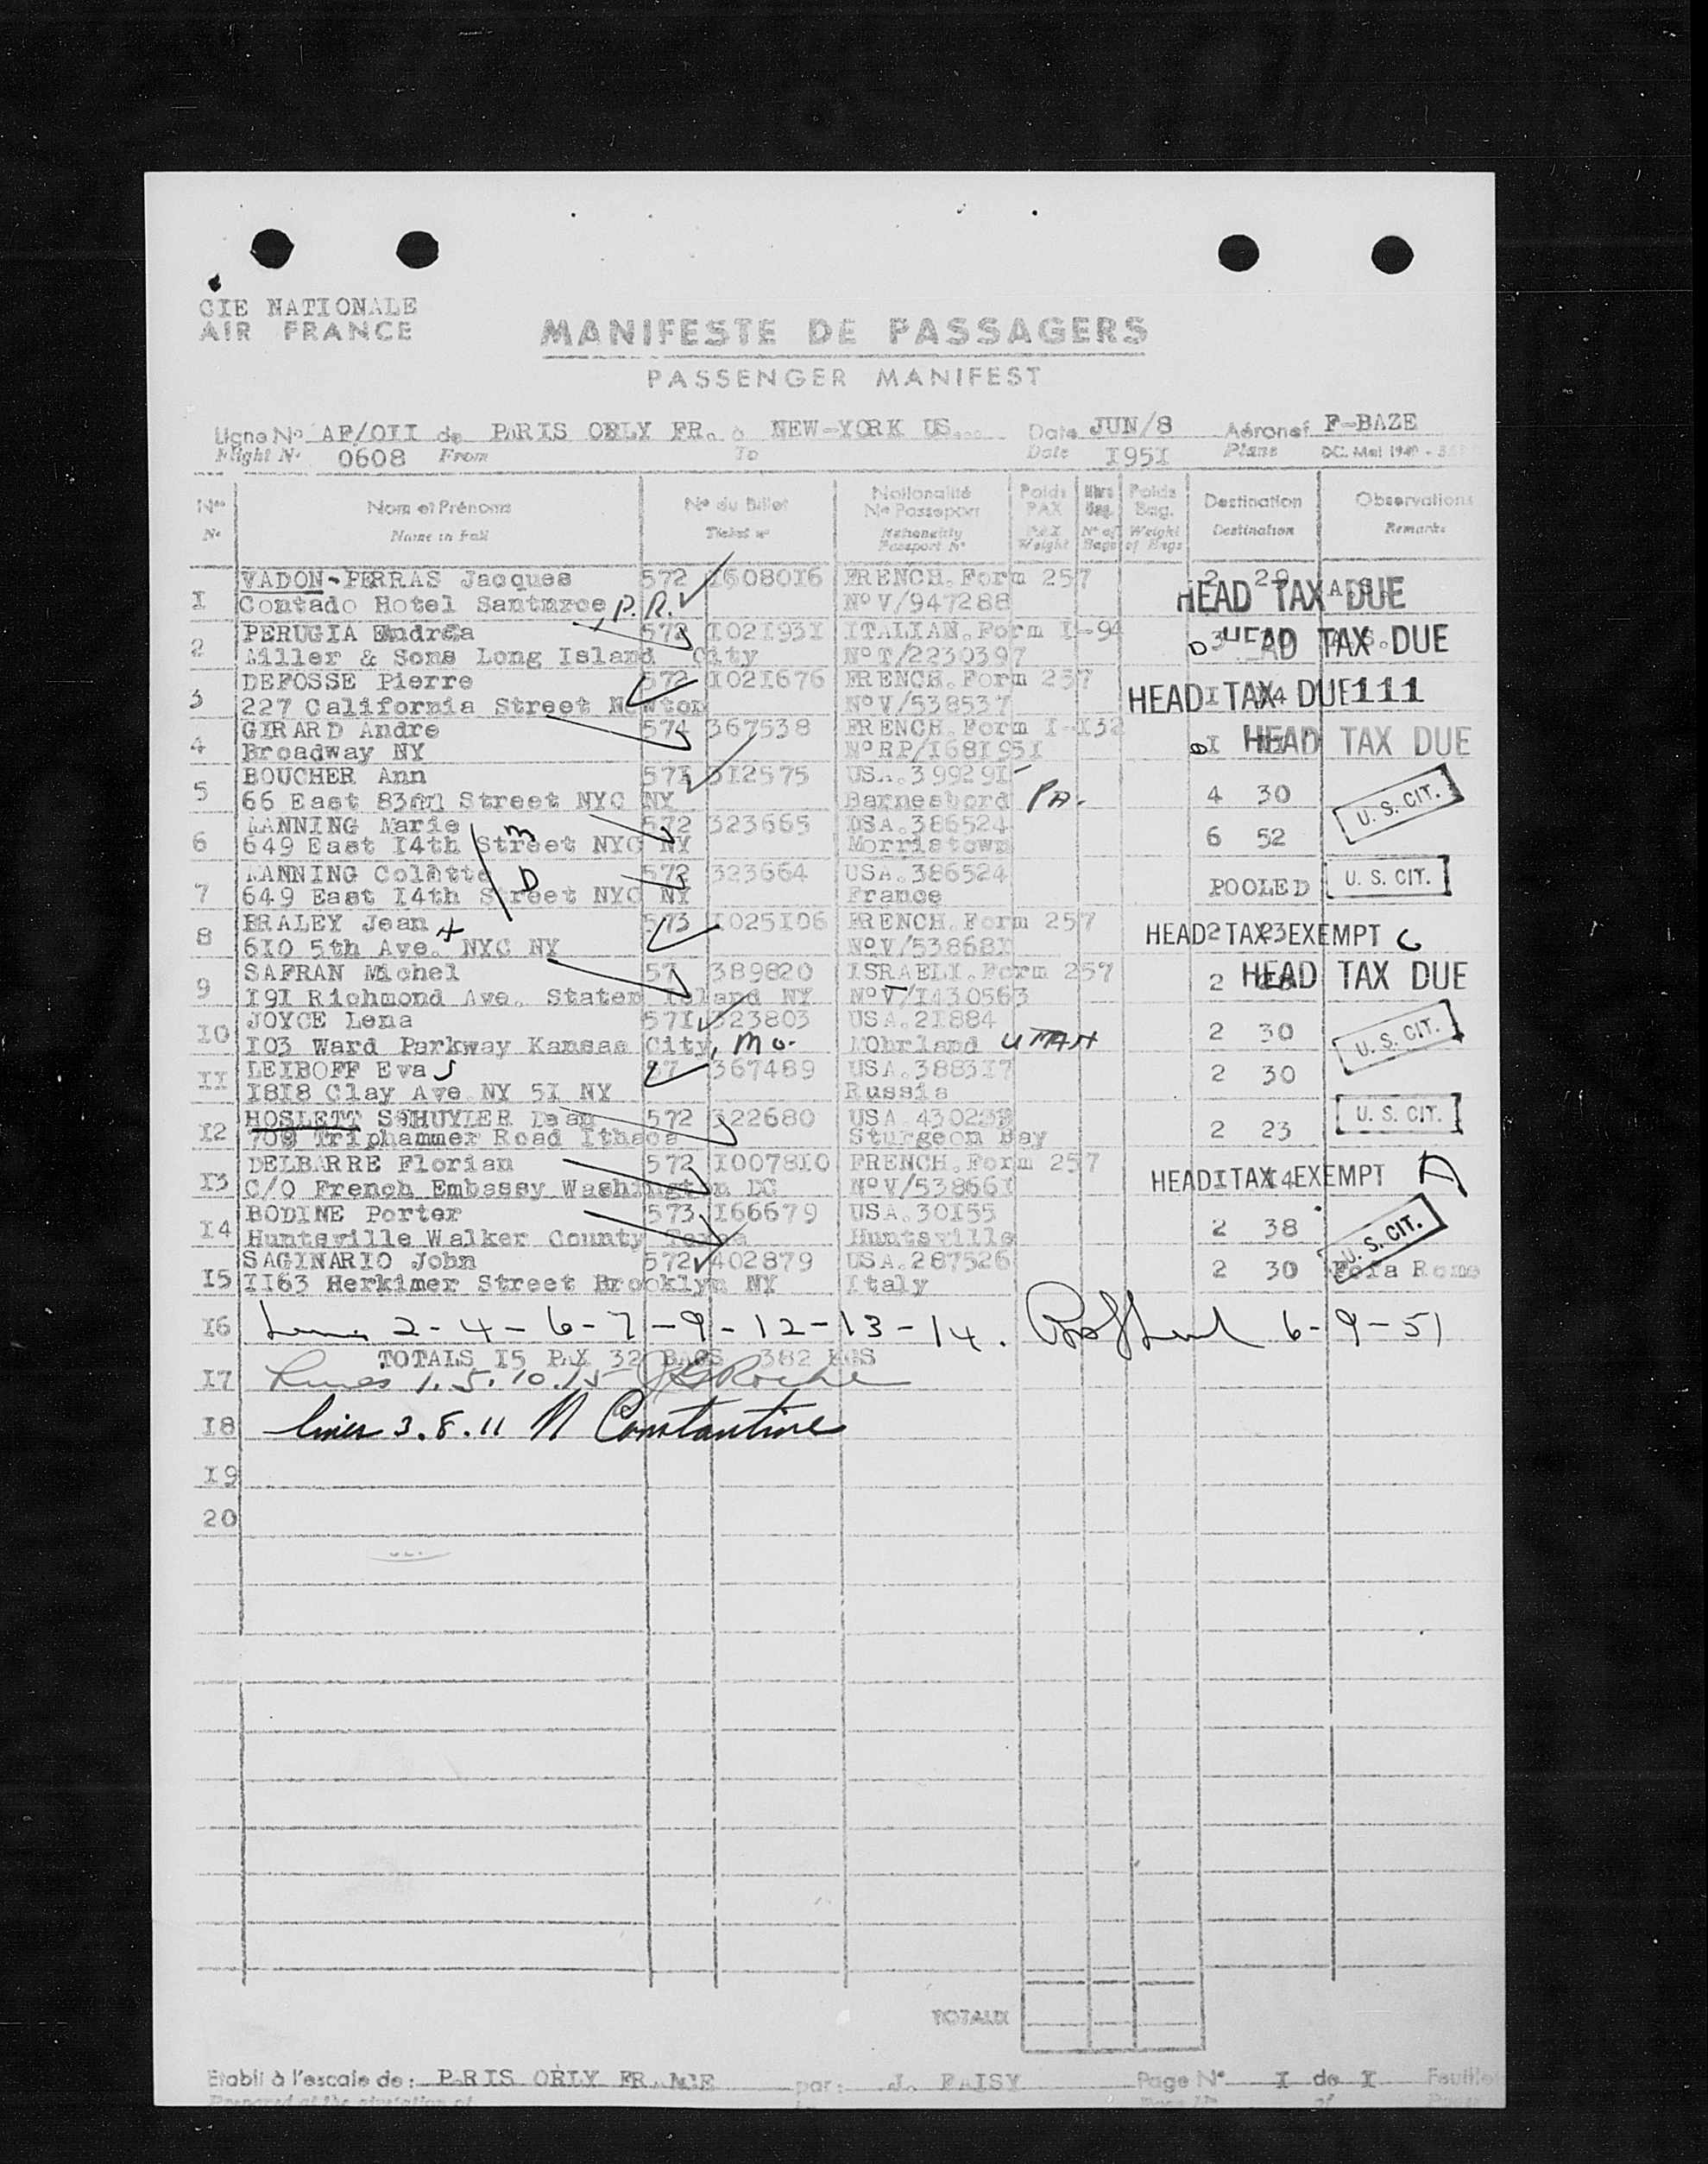 CIE NATIONALE
AIR FRANCE
MANIFESTE DE PASSAGERS
PASSENGER MANIFEST
Ligne No AF/OII de PARIS ORLY FR. à NEW-YORK US. Date JUN/8 Aéronef F-BAZE
Flight No 0608 From To Date I95I Plane DC. Mai 1949
Nos Nom et Prénoms No du Billet Nationalité No Passeport Poids PAX Nbre Bag. Poids Bag. Destination Observations
No Name in Full Ticket no Nationality Passport No PAX Weight No of Bags Weight of Bags Destination Remarks
VADON-PERRAS Jacques 572 I608OI6 FRENCH.Form 257 2
I Contado Hotel Santurce, P.R. NoV/947288 HEAD TAX DUE
PERUGIA Andréa 572 IO2I93I ITALIAN.Form I-94
2 Miller & Sons Long Island City NoT/2230397 D 3 HEAD TAX DUE
DEFOSSE Pierre 572 IO2I676 FRENCH.Form 257
3 227 California Street Newton NoV/538537 HEAD I TAX 4 DUE 111
GIRARD Andre 574 367538 FRENCH.Form I-I32
4 Broadway NY NoRP/I68I95I I HEAD TAX DUE
BOUCHER Ann 57I 3I2575 USA.39929I
5 66 East 83rd Street NYC NY Barnesbord PA. 4 30 U. S. CIT.
MANNING Marie 572 323665 USA.386524
6 649 East I4th Street NYC NY Morristown 6 52
m
MANNING Colette 572 323664 USA.386524
7 649 East I4th Street NYC NY France POOLED U. S. CIT.
D
BRALEY Jean 573 IO25IO6 FRENCH.Form 257
8 6IO 5th Ave. NYC NY NoV/53868I HEAD 2 TAX 23 EXEMPT
SAFRAN Michel 57 389820 ISRAELI.Form 257
9 I9I Richmond Ave. Staten Island NY NoV/I430563 2 HEAD TAX DUE
JOYCE Lena 57I 323803 USA.2I884
IO IO3 Ward Parkway Kansas City, Mo. MOhrland UTAH 2 30 U. S. CIT.
LEIBOFF Eva S 57 367489 USA.3883I7
II I8I8 Clay Ave NY 5I NY Russia 2 30
HOSLETT SCHUYLER Dean 572 322680 USA 4302
I2 709 Triphammer Road Ithaca Sturgeon Bay 2 23 U. S. CIT.
DELBARRE Florian 572 IOO78IO FRENCH.Form 257
I3 C/O French Embassy Washington DC NoV/53866I HEAD I TAX I4 EXEMPT A
BODINE Porter 573 I66679 USA.30I55
I4 Huntsville Walker County Texas Huntsville 2 38 U. S. CIT.
SAGINARIO John 572 402879 USA.287526
I5 II63 Herkimer Street Brooklyn NY Italy 2 30 Rome
I6 Lines 2-4-6-7-9-12-13-14. 6-9-51
TOTALS I5 PAX 32 BAGS 382 KGS
I7 Lines 1.5.10.15 Roche
I8 lines 3.8.11 N Constantine
I9
20
TOTAUX
Etabli à l'escale de: PARIS ORLY FRANCE par: J. FAISY Page No I de I Feuille